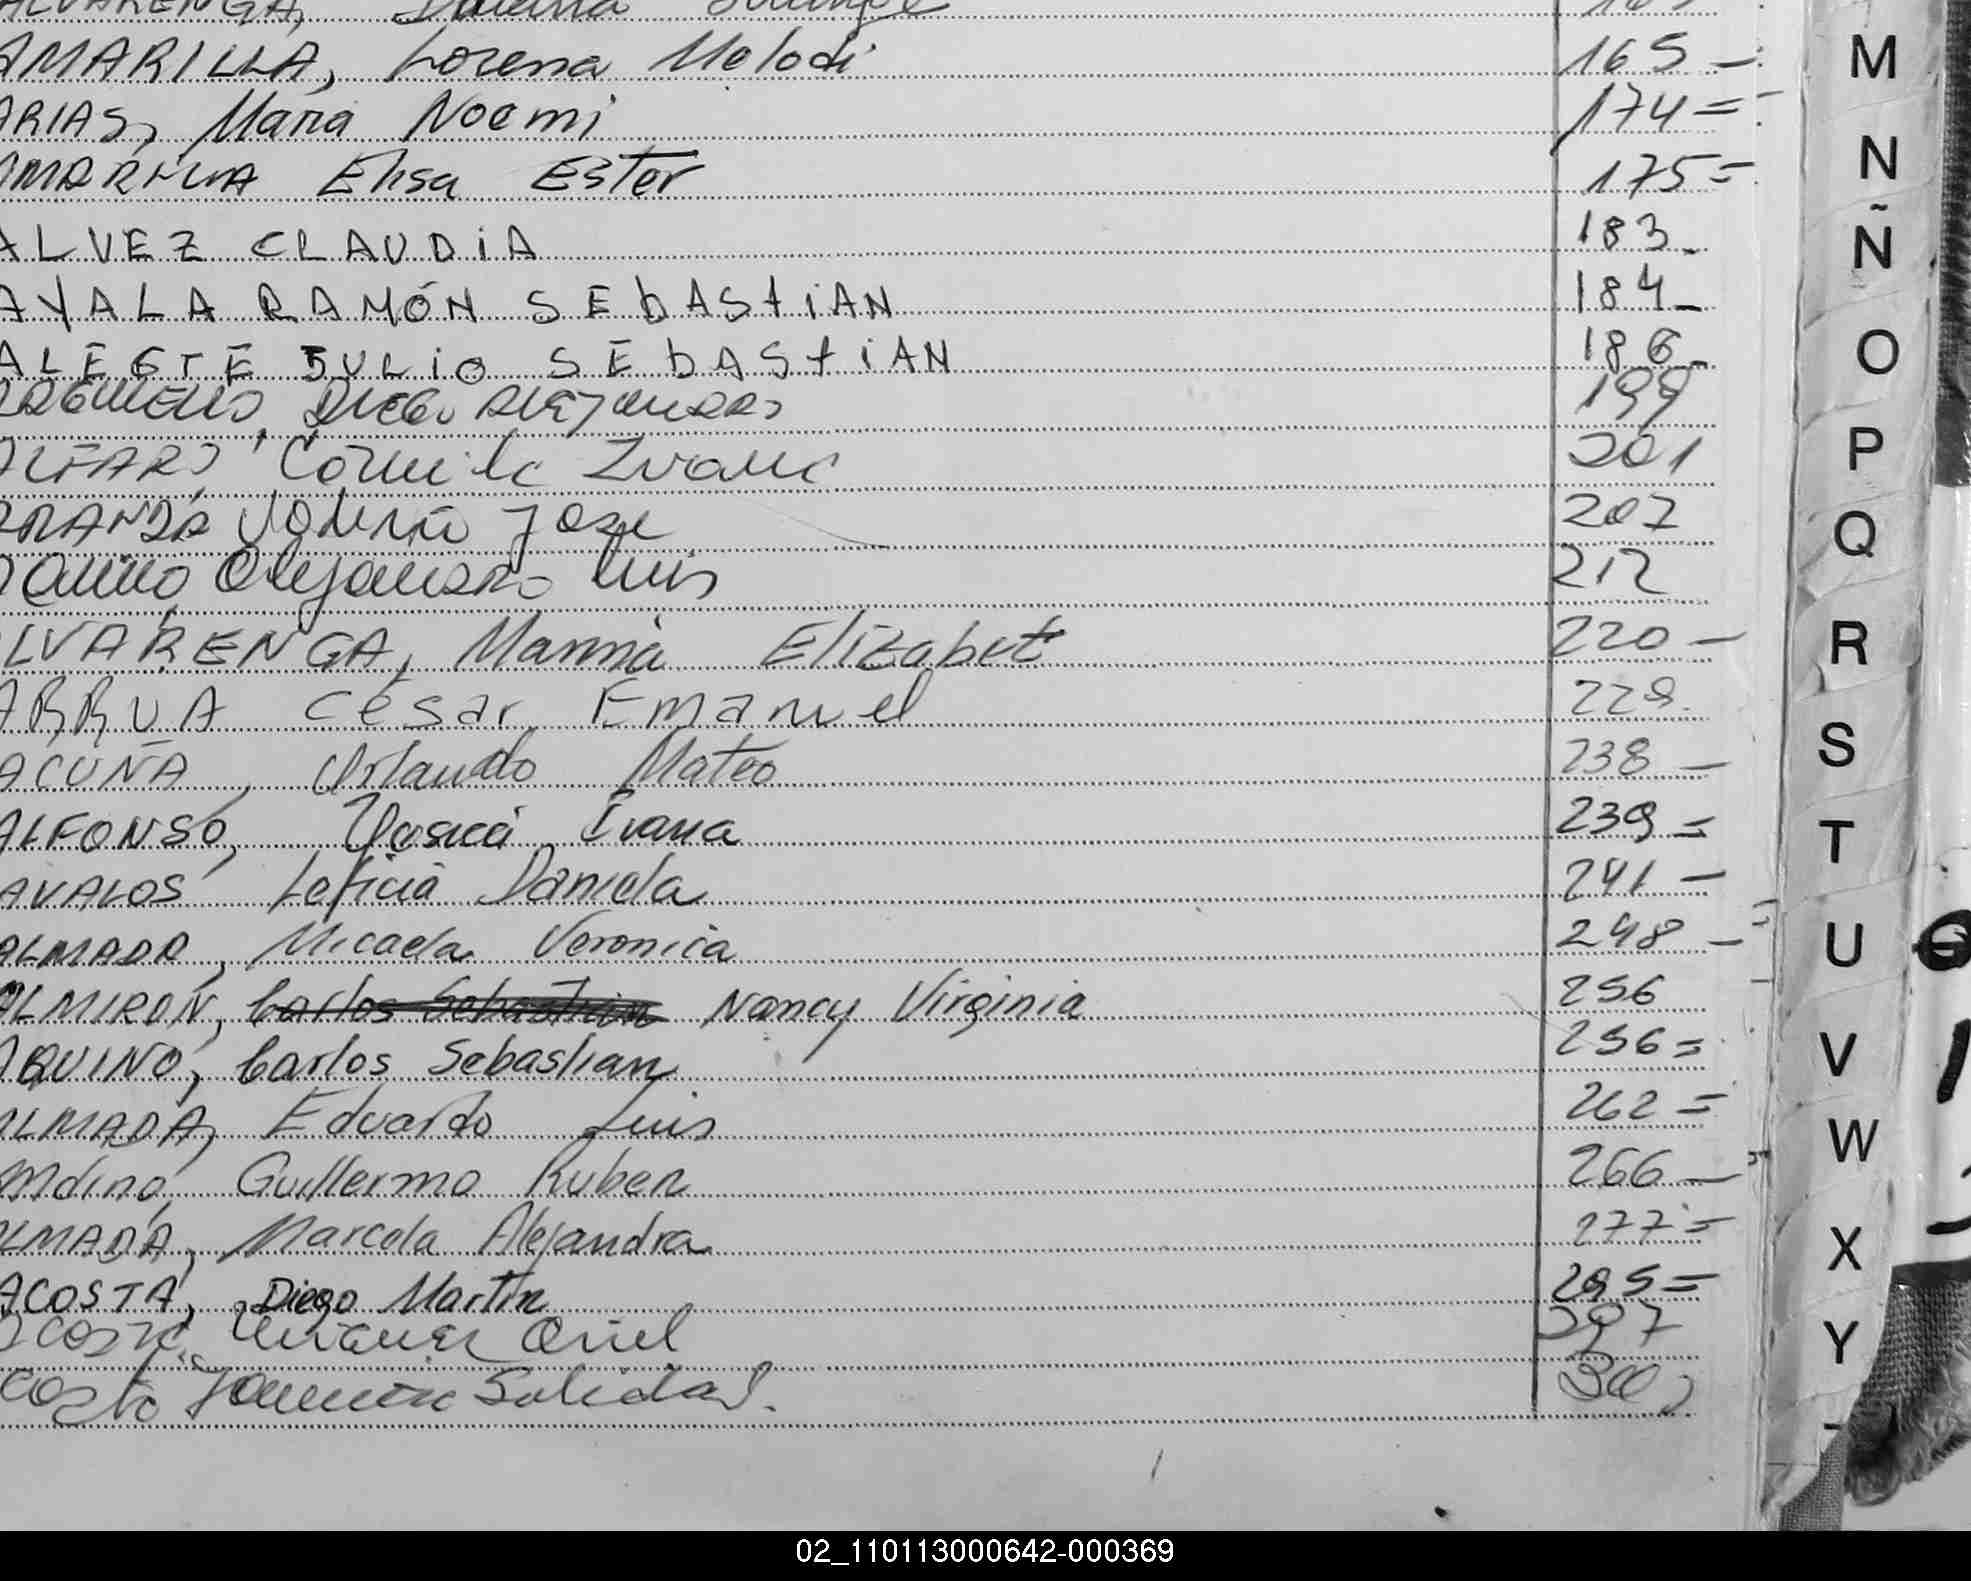 ALVARENGA,
AMARILLA, Lorena Melodi 165 -
ARIAS, Maria Noemi 174 =
AMARILLA Elisa Ester 175 =
ALVEZ CLAUDiA 183 -
AYALA RAMÓN SEbAStiAN 184 -
ALEGTE JULiO SEbAStiAN 186 -
199
ALFARO, Camila Ivana 201
ARANDA Valeria Jose 207
Alejandro Luis 212
ALVARENGA, Marina Elizabet 220 -
ARRUA César Emanuel 229.
ACUÑA, Orlando Mateo 238 -
ALFONSO, Yesica Ivana 239 =
AVALOS Leticia Daniela 241 -
ALMADA, Micaela Veronica 248 -
ALMIRON, Carlos Sebastian Nancy Virginia 256
AQUINO, Carlos Sebastian 256 =
ALMADA, Eduardo Luis 262 =
Guillermo Ruben 266 -
ALMADA, Marcela Alejandra 277 =
ACOSTA, Diego Martin 295 =
Acosta, Oriel 297
Acosta Soledad.
M
N
Ñ
O
P
Q
R
S
T
U
V
W
X
Y
02_110113000642-000369